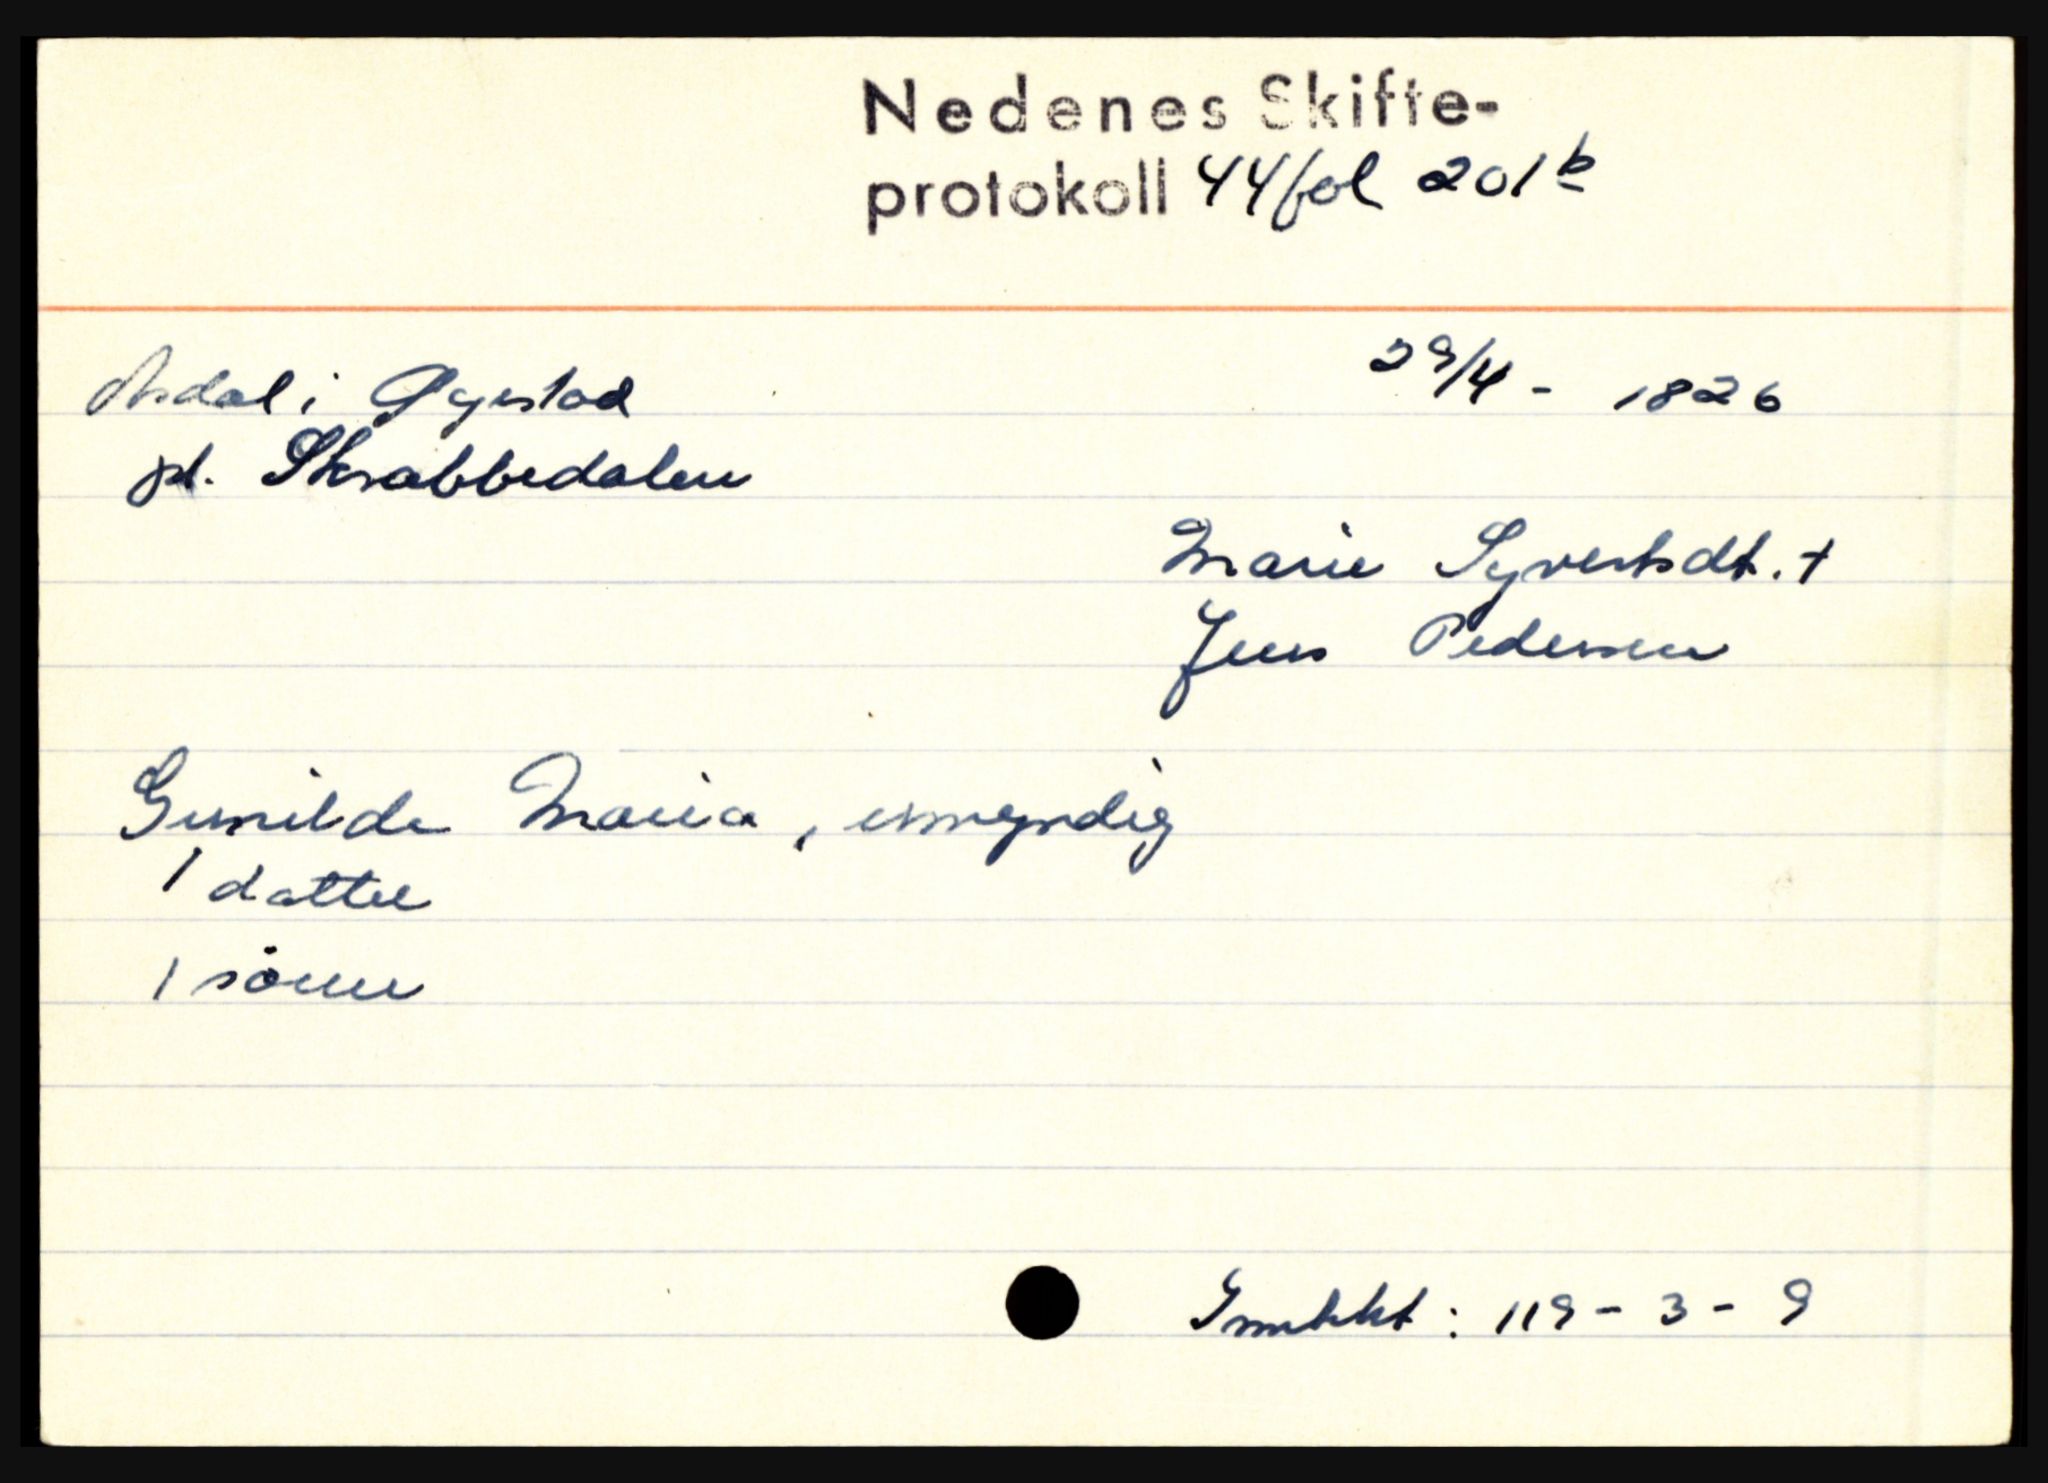 Nedenes Skifte-
protokoll 44 fol 201b
Asdal i Øyestad
29/4 - 1826
pl. Skrabbedalen
Marie Syvertsdt. +
Jens Pedersen
Gunilde Maria, umyndig
1 datter
1 sönn
Inntekt : 119 - 3 - 9